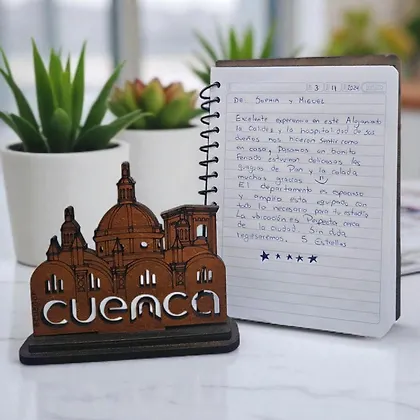 3 11 2024
DE SOPHIA Y MIGUEL
Excelente experiencia en este Alojamiento
la calidez y la hospitalidad de sus
dueños nos hicieron sentir como
en casa, Pasamos un bonito
Feriado estuvieron deliciosas las
guaguas de Pan y la colada
muchas gracias
El departamento es espacioso
y amplio esta equipado con
todo lo necesario para tu estadía
La ubicación es Perfecta cerca
de la ciudad. Sin duda
regresaremos. 5 Estrellas
cuenca